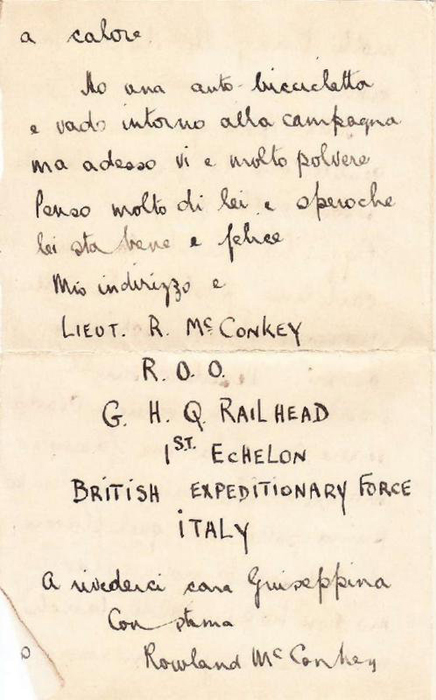 a calore.
Ho una auto-biccicletta
e vado intorno alla campagna
ma adesso vi e molto polvere
Penso molto di lei e spero che
lei sta bene e felice
Mio indirizzo e
LIEUT. R. McCONKEY
R. O. O.
G. H. Q. RAILHEAD
1ST. ECHELON
BRITISH EXPEDITIONARY FORCE
ITALY
A rivederci cara Guiseppina
Con stima
Rowland McConkey